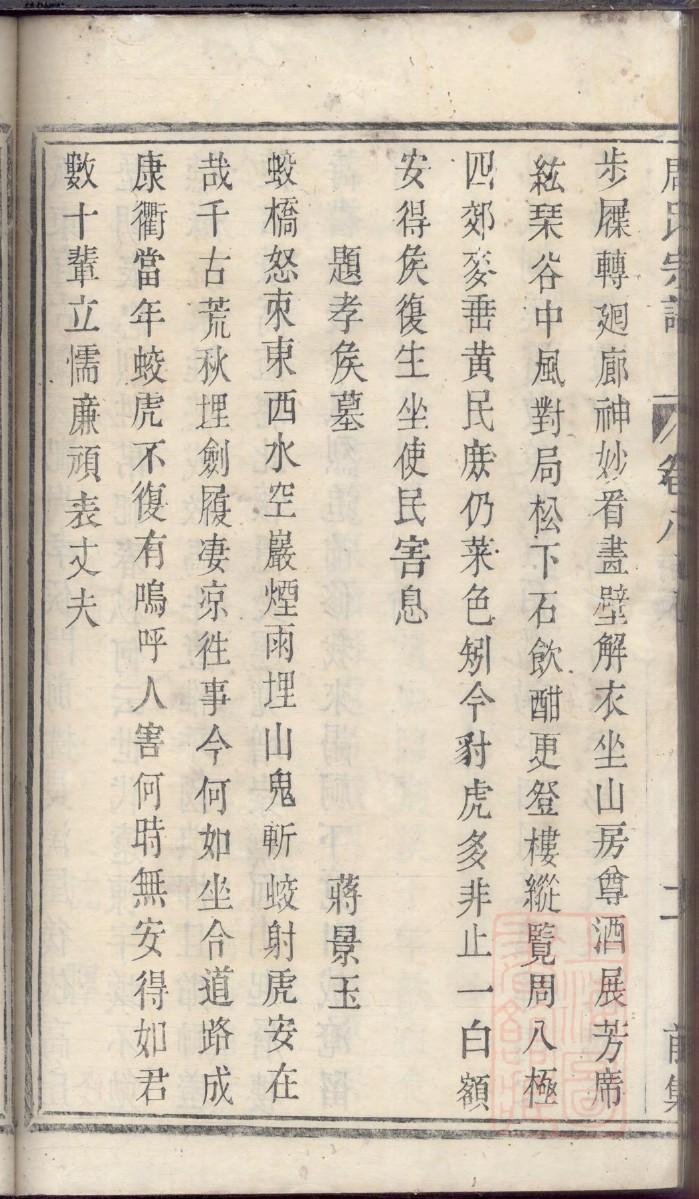 周氏宗譜 卷八 二 前集
步屧轉廻廊神妙看畫壁解衣坐山房尊酒展芳席
絃琹谷中風對局松下石飲酣更登樓縱覽周八極
四郊麥垂黃民庶仍菜色矧今豺虎多非止一白額
安得矦復生坐使民害息
題孝矦墓 蔣景玉
蛟橋怒束東西水空巖煙雨埋山鬼斬蛟射虎安在
哉千古荒秋埋劍履凄凉徃事今何如坐令道路成
康衢當年蛟虎不復有嗚呼人害何時無安得如君
數十輩立懦廉頑表丈夫